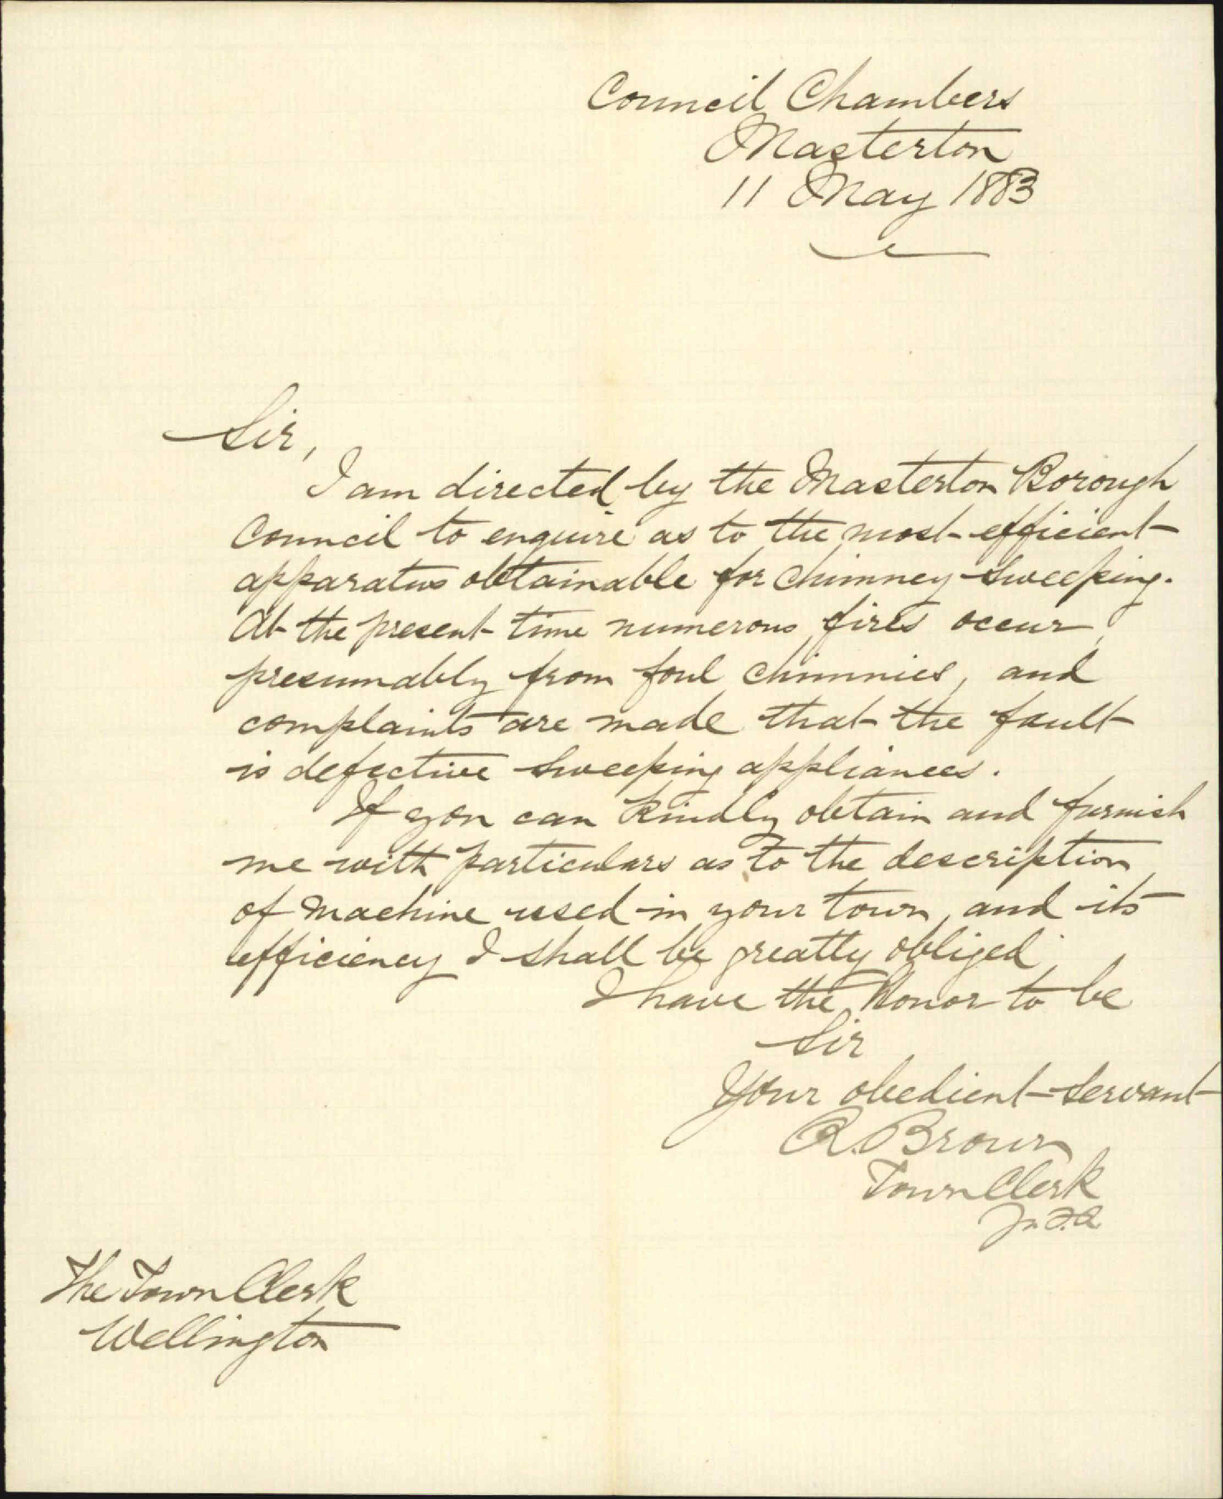 Council Chambers
Masterton
11 May 1883
Sir,
I am directed by the Masterton Borough
Council to enquire as to the most efficient
apparatus obtainable for chimney sweeping.
At the present time numerous fires occur,
presumably from foul chimnies, and
complaints are made that the fault
is defective sweeping appliances.
If you can kindly obtain and furnish
me with particulars as to the description
of machine used in your town, and its
efficiency I shall be greatly obliged.
I have the honor to be
Sir
Your obedient servant
R. Brown
Town Clerk
The Town Clerk
Wellington